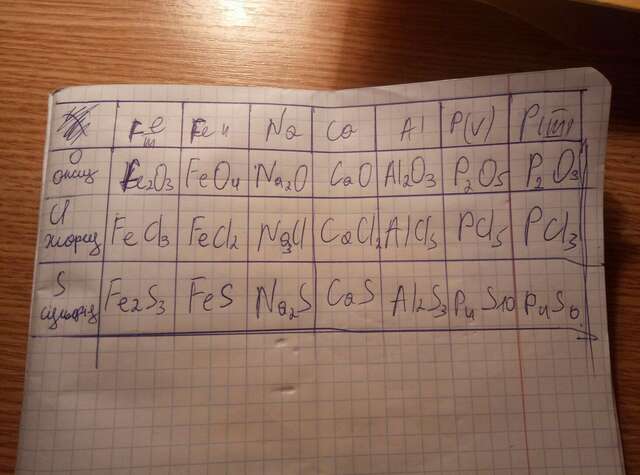 Fe III Fe II Na Ca Al P(V) P(III)
O оксид Fe2O3 FeO4 Na2O CaO Al2O3 P2O5 P2O3
Cl хлорид FeCl3 FeCl2 NaCl CaCl2 AlCl3 PCl5 PCl3
S сульфид Fe2S3 FeS Na2S CaS Al2S3 P4S10 P4S6